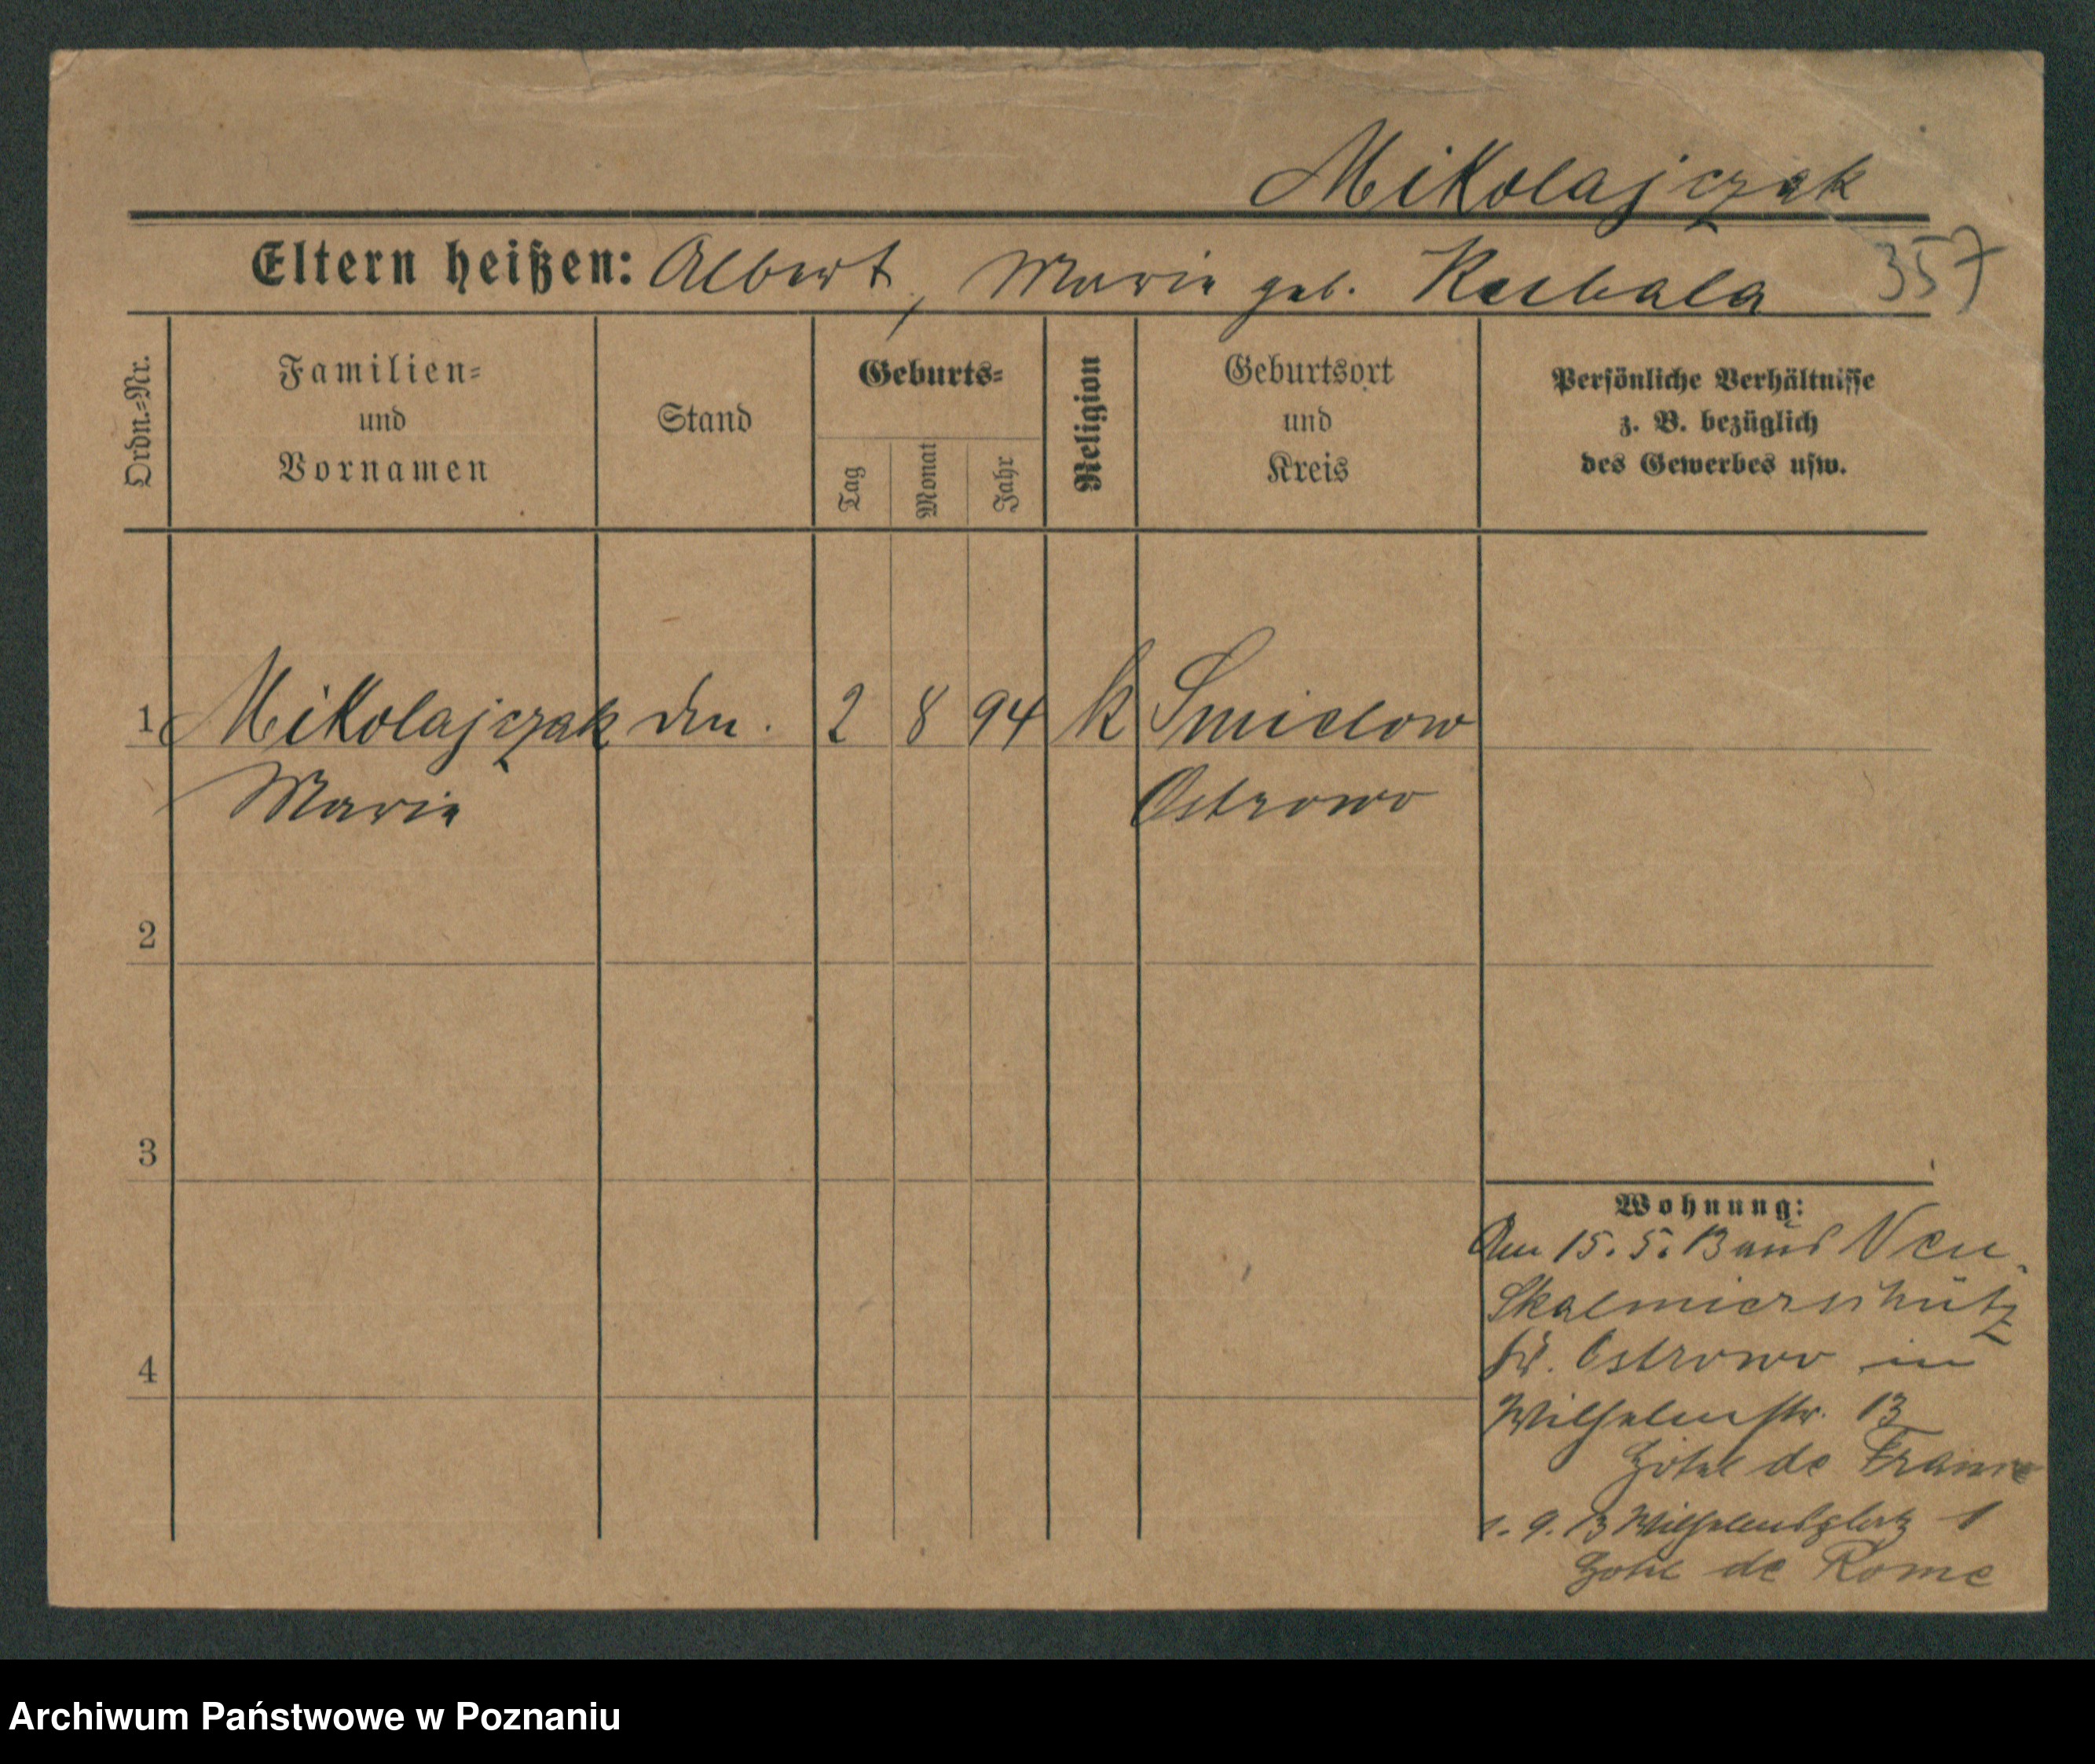 Mikolajczak
Eltern heißen: Albert, Marie geb. Kubala 357
Ordn.=Nr.
Familien=
und
Vornamen
Stand
Geburts=
Tag
Monat
Jahr
Religion
Geburtsort
und
Kreis
Persönliche Verhältnisse
z. B. bezüglich
des Gewerbes usw.
1 Mikolajczak 2 8 94 k Smielow
Marie Ostrowo
2
3
4
Wohnung:
Am 15. 5. 13 aus Neu
Skalmierschütz
Kr. Ostrowo in
Wilhelmstr. 13
Hôtel de France
1. 9. 13 Wilhelmsplatz 1
Hotel de Rome
Archiwum Państwowe w Poznaniu